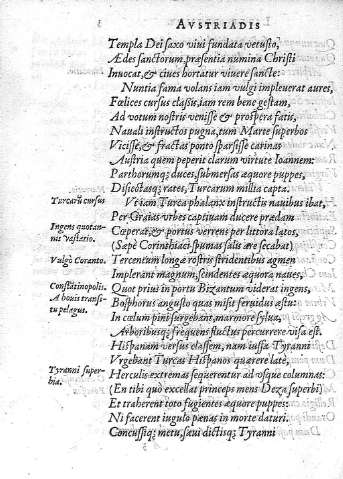 AVSTRIADIS
Templa Dei saxo viui fundata vetusto,
Ædes sanctorum, præsentia numina Christi
Inuocat, & ciues hortatur viuere sancte:
Nuntia fama volans iam vulgi impleuerat aures,
Fœlices cursus classis, iam rem bene gestam,
Ad votum nostris venisse & prospera fatis,
Nauali instructos pugna, tum Marte superbos
Vicisse, & fractas ponto sparsisse carinas
Austria quem peperit clarum virtute Ioannem:
Parthorumq; duces, submersas æquore puppes,
Disiectasq; rates, Turcarum millia capta.
Turcarũ cursus
Vt iam Turca phalanx instructis nauibus ibat,
Per Graias vrbes captiuam ducere prædam
Ingens quotannis vestatio.
Cœperat, & portus verrens per littora latos,
(Sæpè Corinthiaci spumas salis ære secabat)
Vulgò Coranto.
Tercentum longæ rostris stridentibus agmen
Implerant magnum, scindentes æquora naues,
Constātinopolis.
Quot prius in portu Bizantum viderat ingens,
A bouis transitu pelagus.
Bosphorus angusto quas misit feruidus æstu:
In cœlum pini surgebant, marmore sylua,
Arboribusq; frequens fluctus percurrere visa est.
Hispanam versus classem, nam iussa Tyranni
Tyranni superbia.
Vrgebant Turcas Hispanos quærere late,
Herculis extremas sequerentur ad vsque columnas:
(En tibi quò excellat princeps mens Deza superbi)
Et traherent toto fugientes æquore puppes:
Ni facerent iugulo pœnas in morte daturi.
Concussiq; metu, sæui dictisq; Tyranni